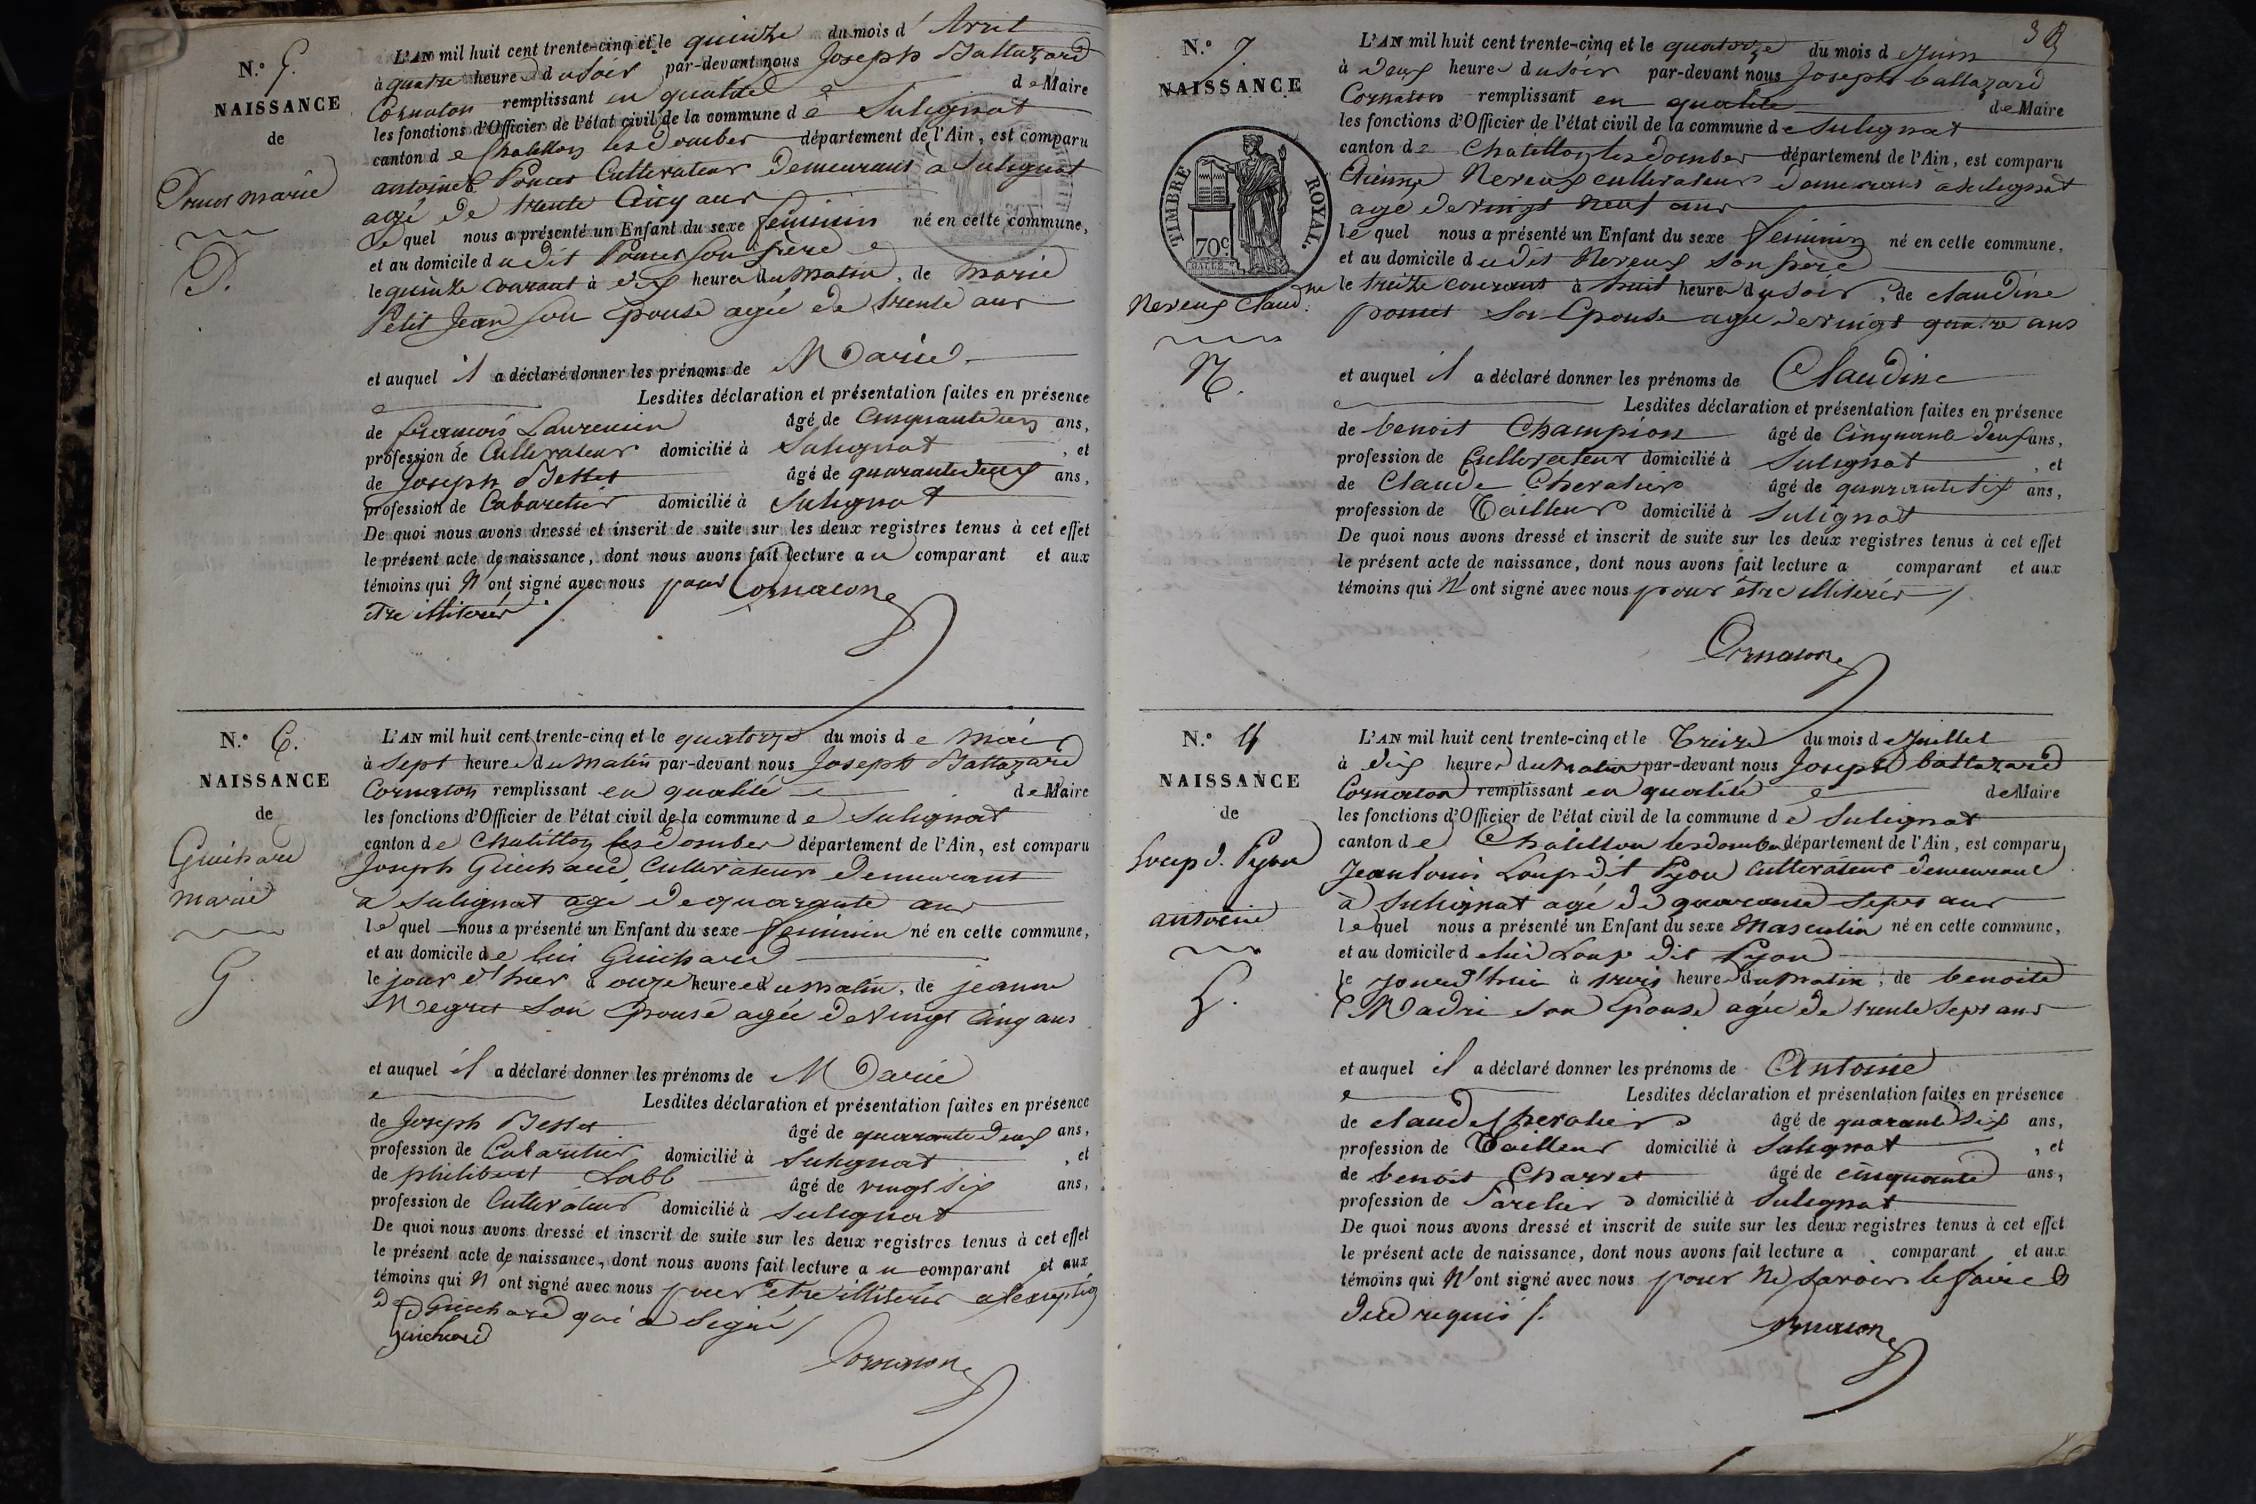 N.° 5.
NAISSANCE
de
Poncet marie
P.
L'AN mil huit cent trente-cinq et le quinze du mois d'Avril
à quatre heure du soir par-devant nous Joseph Baltazard
Cornaton remplissant en qualité de Maire
les fonctions d'Officier de l'état civil de la commune de Sulignat
canton de Chatillon les Dombes département de l'Ain, est comparu
antoine Poncet Cultivateur Demeurant à Sulignat
agé de trente Cinq ans
Le quel nous a présenté un Enfant du sexe feminin né en cette commune,
et au domicile dudit Poncet son père
le quinze courant à dix heure du matin, de marie
Petit Jean son Epouse agée de trente ans
et auquel il a déclaré donner les prénoms de Marie
Lesdites déclaration et présentation faites en présence
de françois Laurencin âgé de Cinquante ans,
profession de Cultivateur domicilié à Sulignat, et
de Joseph Besset âgé de quarante deux ans,
profession de Cabaretier domicilié à Sulignat
De quoi nous avons dressé et inscrit de suite sur les deux registres tenus à cet effet
le présent acte de naissance, dont nous avons fait lecture au comparant et aux
témoins qui N'ont signé avec nous pour
etre illiterés Cornaton
N.° 6.
NAISSANCE
de
Guichard
marie
G.
L'AN mil huit cent trente-cinq et le quatorze du mois de Mai
à sept heure du Matin par-devant nous Joseph Baltazard
Cornaton remplissant en qualité de Maire
les fonctions d'Officier de l'état civil de la commune de Sulignat
canton de Chatillon les Dombes département de l'Ain, est comparu
Joseph Guichard, Cultivateur Demeurant
à Sulignat age de quarante ans
le quel nous a présenté un Enfant du sexe feminin né en cette commune,
et au domicile de lui Guichard
le jour d'hier à onze heure du matin, de jeanne
Negret son Epouse agée de Vingt Cinq ans
et auquel il a déclaré donner les prénoms de Marie
Lesdites déclaration et présentation faites en présence
de Joseph Besset âgé de quarante deux ans,
profession de Cabaretier domicilié à Sulignat, et
de philibert âgé de vingt six ans,
profession de Cultivateur domicilié à Sulignat
De quoi nous avons dressé et inscrit de suite sur les deux registres tenus à cet effet
le présent acte de naissance, dont nous avons fait lecture au comparant et aux
témoins qui N'ont signé avec nous pour etre illiterés a l'exception
de Guichard qui a Signé
guichard
Cornaton
39
N.° 7.
NAISSANCE
TIMBRE ROYAL.
70c
Nereux Claud.ne
N.
L'AN mil huit cent trente-cinq et le quatorze du mois de Juin
à deux heure du soir par-devant nous Joseph baltazard
Cornaton remplissant en qualité de Maire
les fonctions d'Officier de l'état civil de la commune de Sulignat
canton de Chatillon les dombes département de l'Ain, est comparu
Etienne Nereux cultivateur demeurant à Sulignat
age de vingt neuf ans
le quel nous a présenté un Enfant du sexe feminin né en cette commune,
et au domicile dudit Nereux son père
le treize courant à huit heure du soir, de claudine
poncet son Epouse agée de vingt quatre ans
et auquel il a déclaré donner les prénoms de Claudine
Lesdites déclaration et présentation faites en présence
de benoit Champion âgé de Cinquante deux ans,
profession de Cultivateur domicilié à Sulignat, et
de Claude Chevalier âgé de quarante six ans,
profession de Tailleur domicilié à Sulignat
De quoi nous avons dressé et inscrit de suite sur les deux registres tenus à cet effet
le présent acte de naissance, dont nous avons fait lecture a comparant et aux
témoins qui N'ont signé avec nous pour être illiterés
Cornaton
N.°
NAISSANCE
de
Loup d. Pyon
antoine
L.
L'AN mil huit cent trente-cinq et le Treize du mois de Juillet
à dix heure du matin par-devant nous Joseph baltazard
Cornaton remplissant en qualité de Maire
les fonctions d'Officier de l'état civil de la commune de Sulignat
canton de Chatillon les dombes département de l'Ain, est comparu
Jean Louis Loup dit Pyon Cultivateur demeurant
à Sulignat agé de quarante sept ans
le quel nous a présenté un Enfant du sexe Masculin né en cette commune,
et au domicile de lui Loup dit Pyon
le jourd'hui à trois heure du matin, de benoite
Madri son Epouse agée de trente Sept ans
et auquel il a déclaré donner les prénoms de Antoine
Lesdites déclaration et présentation faites en présence
de claude Chevalier âgé de quarante Six ans,
profession de Tailleur domicilié à Sulignat, et
de benoit Charvet âgé de cinquante ans,
profession de domicilié à Sulignat
De quoi nous avons dressé et inscrit de suite sur les deux registres tenus à cet effet
le présent acte de naissance, dont nous avons fait lecture a comparant et aux
témoins qui N'ont signé avec nous pour ne savoir le faire
de ce requis
Cornaton